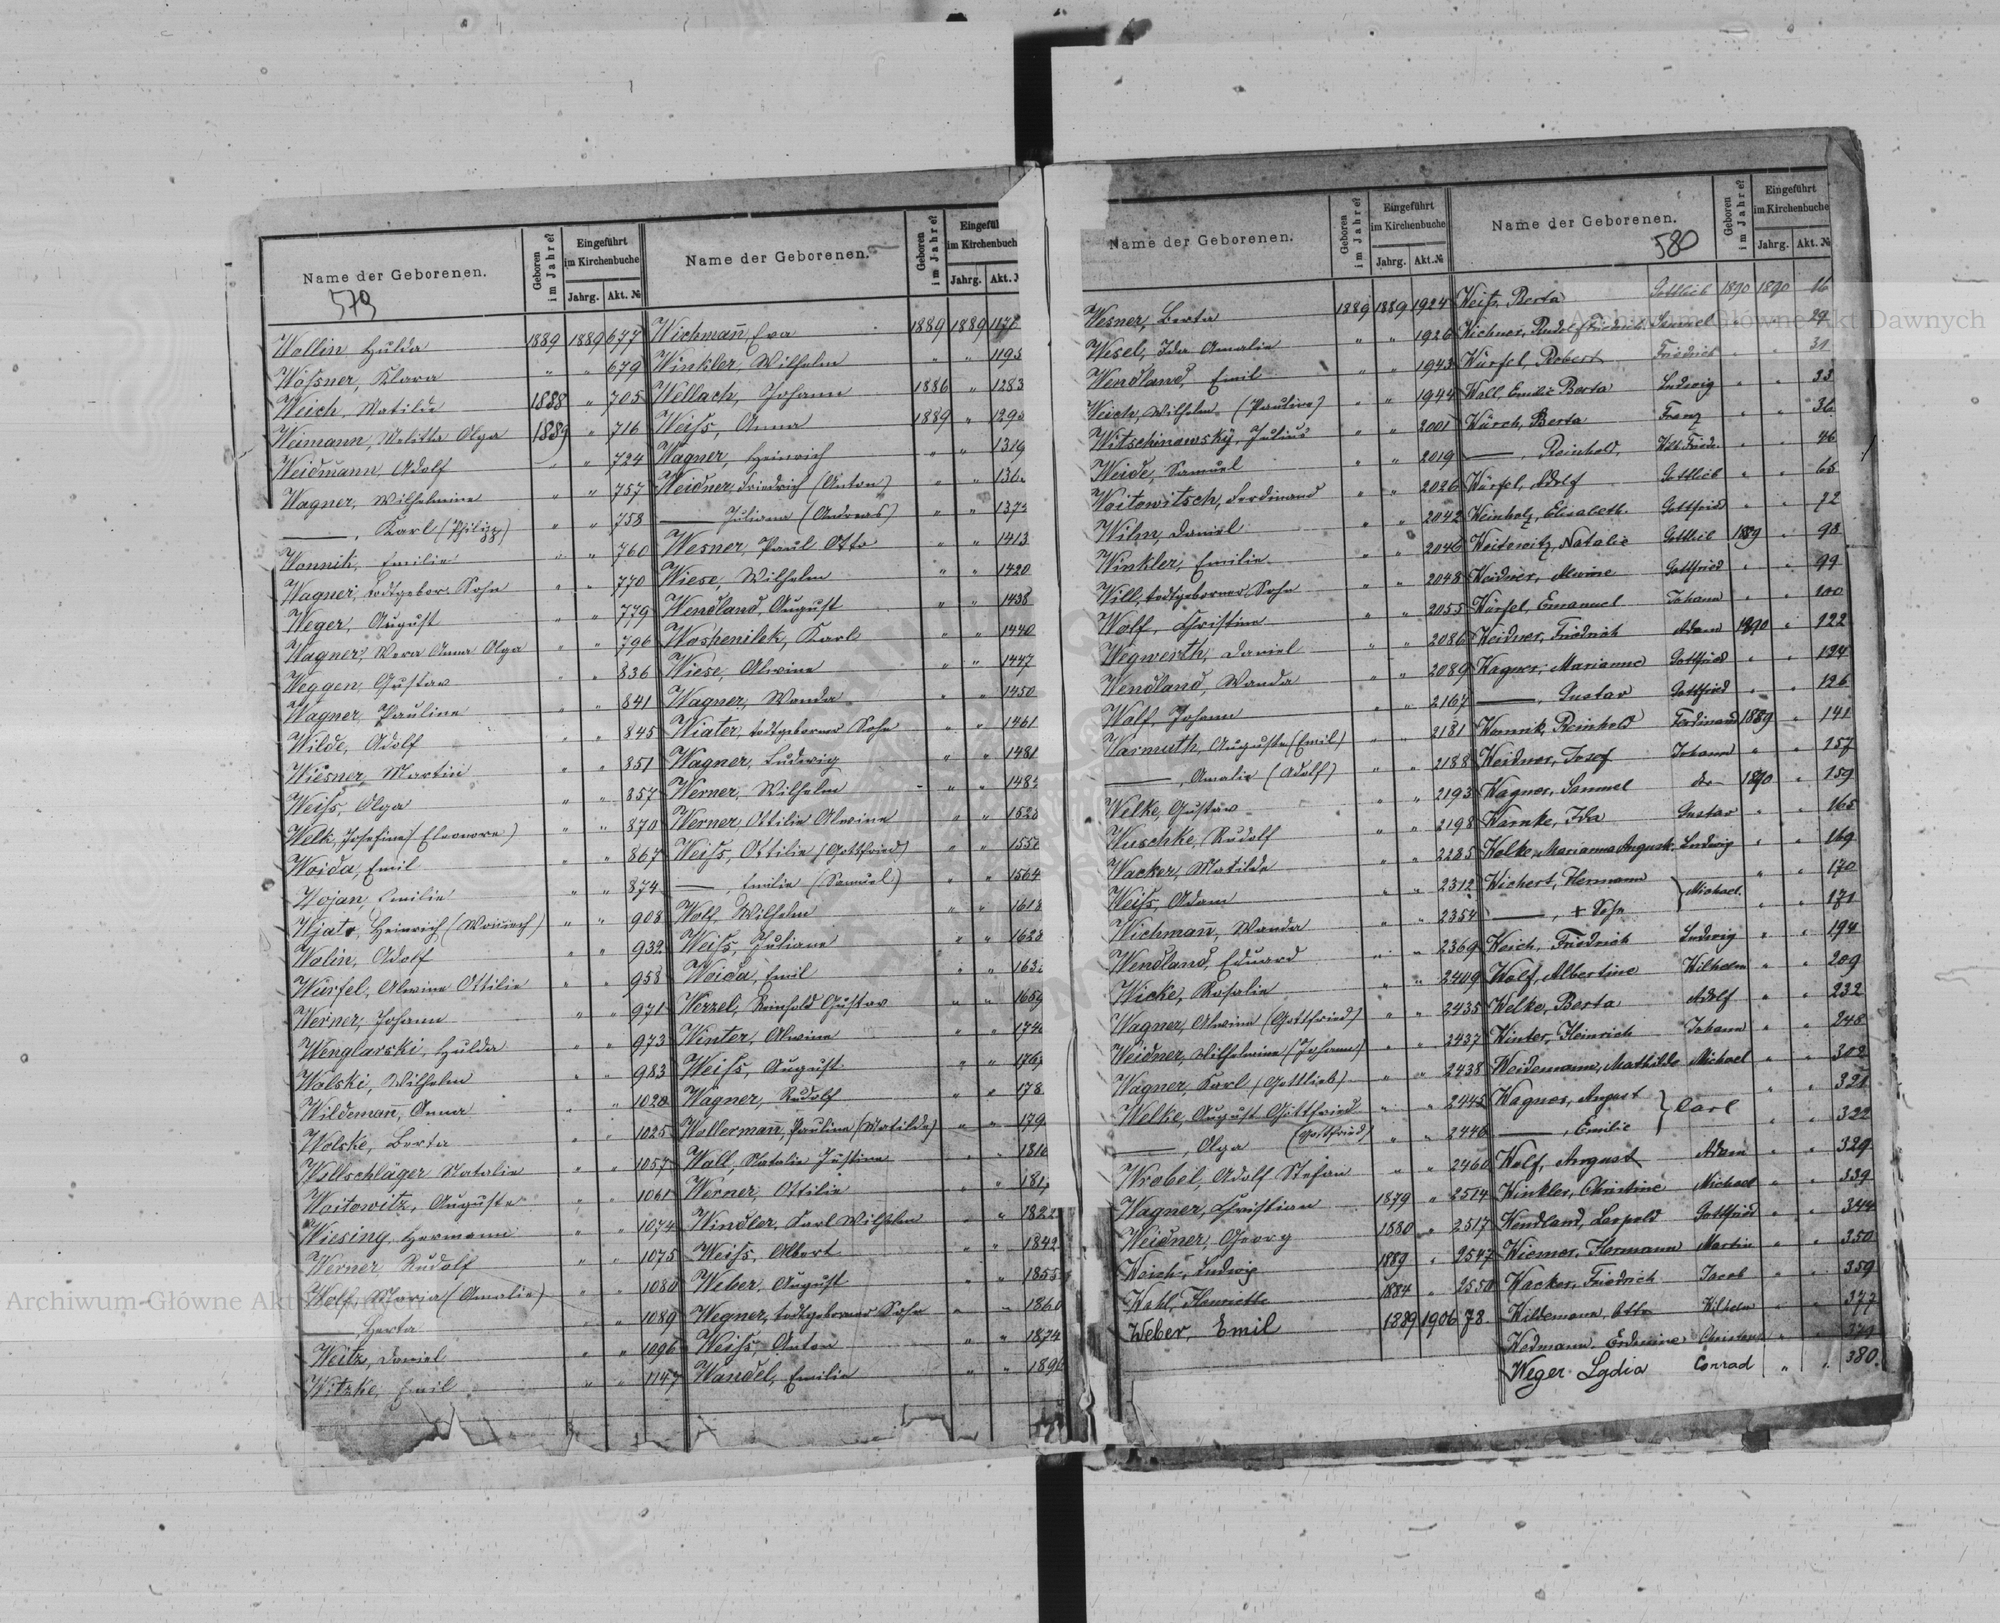 Name der Geborenen.
Geboren im Jahre?
Eingeführt im Kirchenbuche
Jahrg. Akt. №
579
Wollin, Hulda 1889 1889 677
Wössner, Klara " " 679
Weich, Matilde 1888 " 705
Weimann, Melitta Olga 1889 " 716
Weidmann, Adolf " " 724
Wagner, Wilhelmine " " 757
——, Karl (Philipp) " " 758
Wonnik, Emilie " " 760
Wagner, todtgebor. Sohn " " 770
Weger, August " " 779
Wagner, Wera Anna Olga " " 796
Weggen, Gustav " " 836
Wagner, Pauline " " 841
Wilde, Adolf " " 845
Wiesner, Martin " " 851
Weiss, Olga " " 857
Welk, Josefine (Eleonore) " " 870
Woida, Emil " " 867
Wojan, Emilie " " 874
Wjatr, Heinrich " " 908
Wolin, Adolf " " 932
Würfel, Alwine Ottilie " " 958
Werner, Johann " " 971
Wenglarski, Hulda " " 973
Wolski, Wilhelm " " 983
Wildemann, Anna " " 1020
Wolske, Berta " " 1025
Wollschläger Natalie " " 1057
Woitowitz, Auguste " " 1061
Wiesing, Hermann " " 1074
Werner, Rudolf " " 1075
Wolf, Maria (Amalie) " " 1080
——, Herta " " 1089
Weitz, Daniel " " 1096
Witzke, Emil " " 1147
Name der Geborenen.
Geboren im Jahre?
Eingefüh
im Kirchenbuch
Jahrg. Akt.
Wichmann, Eva 1889 1889
Winkler, Wilhelm " " 1195
Wellach, Johann 1886 " 1283
Weiss, Anna 1889 "
Wagner, Heinrich " " 1319
Weidner, Friedrich (Anton) " "
—— Juliana (Andreas) " "
Wesner, Paul Otto " " 1413
Wiese, Wilhelm " " 1420
Wendland, August " " 1438
Woshenilek, Karl " " 1440
Wiese, Alwine " " 1447
Wagner, Wanda " " 1450
Wiater, todtgeborner Sohn " " 1461
Wagner, Ludwig " " 1481
Werner, Wilhelm " "
Werner, Ottilie Alwine " "
Weiss, Ottilie (Gottfried) " "
——, Emilie (Samuel) " " 1564
Wolf, Wilhelm " " 1618
Weiss, Juliane " " 1628
Woida, Emil " "
Wenzel, Reinhold Gustav " " 1689
Winter, Alwine " "
Weiss, August " "
Wagner, Rudolf " " 178
Wollermann, Pauline (Matilde) " " 179
Wall, Natalie Justine " " 1816
Werner, Ottilie " " 181
Windler, Karl Wilhelm " " 182
Weiss, Albert " " 1842
Weber, August " " 1855
Wegner, todtgeborner Sohn " " 1860
Weiss, Anton " " 1874
Wandel, Emilie " " 1896
Name der Geborenen.
Geboren im Jahre?
Eingeführt im Kirchenbuche
Jahrg. Akt. №
Wesner, Berta 1889 1889 1924
Wesel, Ida Amalie " " 1926
Wendland, Emil " " 1943
Weich, Wilhelm (Pauline) " " 1944
Witschinowsky, Julius " " 2001
Weide, Samuel " " 2019
Woitowitsch, Ferdinand " " 2026
Wilm, Daniel " " 2042
Winkler, Emilie " " 2046
Will, todtgeborner Sohn " " 2048
Wolf, Christine " " 2055
Wegwerth, Daniel " " 2086
Wendland, Wanda " " 2089
Wolf, Johann " " 2167
Warmuth, Auguste (Emil) " " 2181
——, Amalie (Adolf) " " 2188
Welke, Gustav " " 2193
Wuschke, Rudolf " " 2198
Wacker, Matilde " " 2285
Weiss, Adam " " 2312
Wichmann, Wanda " " 2354
Wendland, Eduard " " 2369
Wicke, Rosalie " " 2409
Wagner, Alwine (Gottfried) " " 2435
Weidner, Wilhelmine (Johann) " " 2437
Wagner, Karl (Gottlieb) " " 2438
Welke, August Gottfried " " 2445
——, Olga (Gottfried) " " 2446
Wrobel, Adolf Stefan " " 2460
Wagner, Christian 1879 " 2514
Weidner, Georg 1880 " 2517
Weich, Ludwig 1889 " 2547
Wahl, Henriette 1884 " 2550
Weber, Emil 1889 1906 78.
Name der Geborenen.
580
Geboren im Jahre?
Eingeführt im Kirchenbuche
Jahrg. Akt. №
Weiss, Berta Gottlieb 1890 1890 16
Wichner, Rudolf Friedrich Samuel " " 29
Würfel, Robert Friedrich " " 31
Wall, Emilie Berta Ludwig " " 33
Würch, Berta Franz " " 36
——, Reinhold, " " 46
Würfel, Adolf Gottlieb " " 65
Weinholz, Elisabeth Gottfried " " 72
Woitowitz, Natalie Gottlieb 1889 " 98
Weidner, Alwine Gottfried " " 99
Würfel, Emanuel Johann " " 100
Weidner, Friedrich Adam 1890 " 122
Wagner, Marianne Gottfried " " 124
——, Gustav Gottfried " " 126
Wonnik, Reinhold Ferdinand 1889 " 141
Weidner, Josef Johann " " 157
Wagner, Samuel do 1890 " 159
Warnke, Ida Gustav " " 165
Wolke, Marianna August. Ludwig " " 169
Wichert, Hermann } Michael " " 170
——, + Sohn " " 171
Weich, Friedrich Ludwig " " 194
Wolf, Albertine Wilhelm " " 209
Welke, Berta Adolf " " 232
Winter, Heinrich Johann " " 248
Weidemann, Mathilde Michael " " 302
Wagner, August } Carl " " 321
——, Emilie " " 322
Wolf, August Adam " " 329
Winkler, Christine Michael " " 339
Wendland, Leopold Gottfried " " 344
Wiemer, Hermann Martin " " 350
Wacker, Friedrich Jacob " " 359
Wildemann, Otto Wilhelm " " 377
Wedmann, Erdmine Christian " " 379
Weger Lydia Conrad " " 380.
Archiwum Główne Akt Dawnych
Archiwum Główne Akt Dawnych